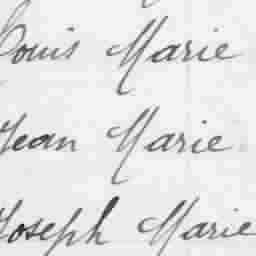 Louis Marie
Jean Marie
Joseph Marie